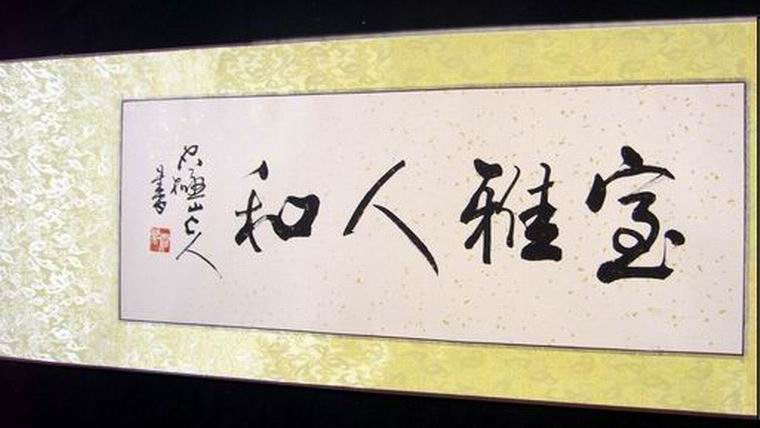 室雅人和
山人
書